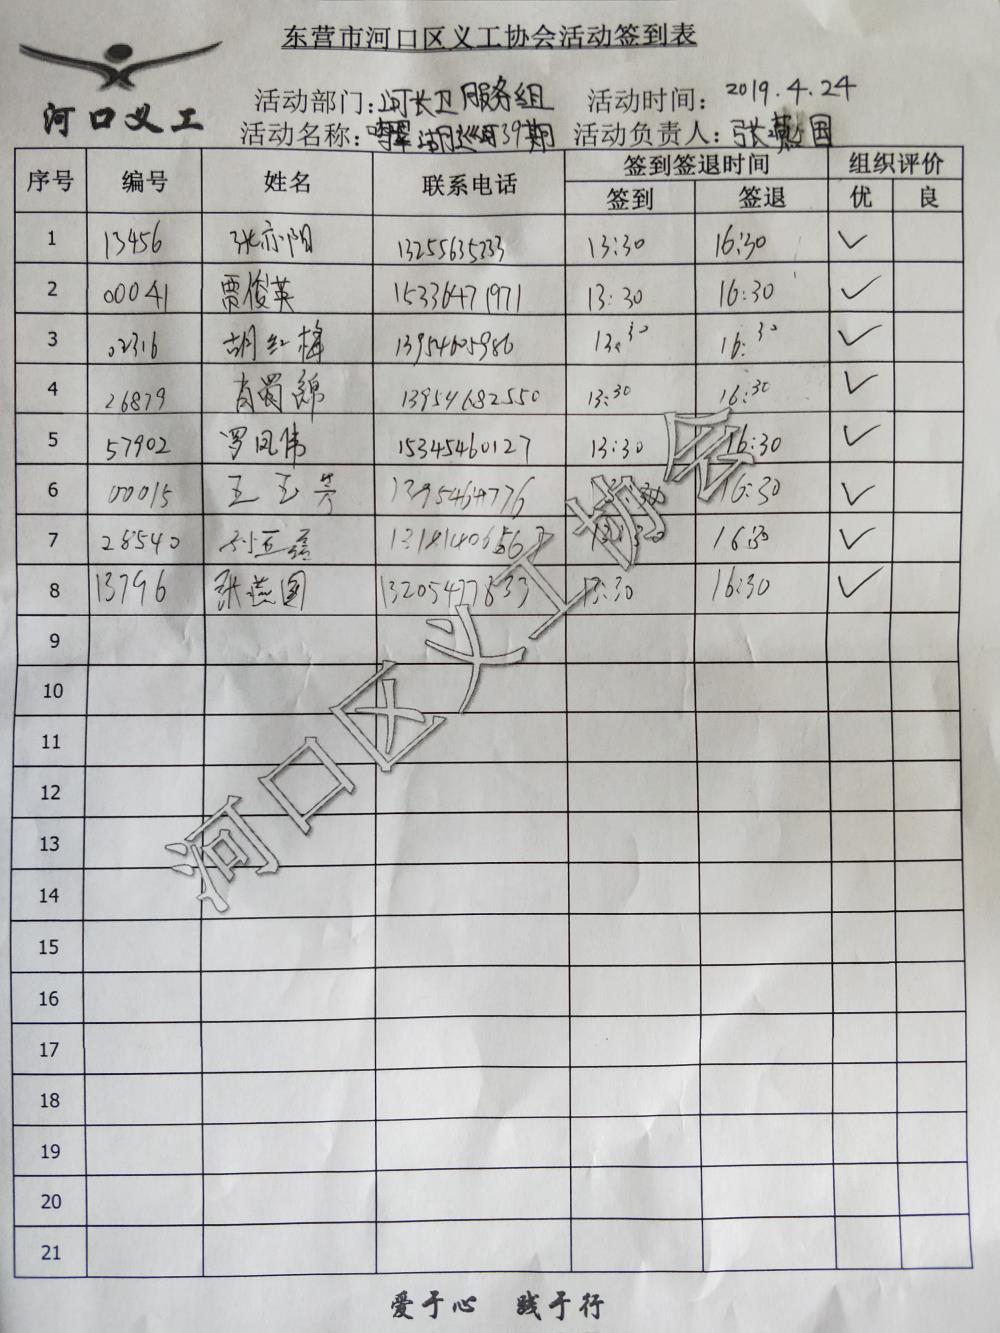 东营市河口区义工协会活动签到表
河口义工
活动部门：河长卫服务组 活动时间：2019.4.24
活动名称：鸣翠湖巡河39期 活动负责人：张燕国
序号 编号 姓名 联系电话 签到签退时间 组织评价
签到 签退 优 良
1 13456 张亦阳 13255635233 13:30 16:30 ✓
2 00041 贾俊英 15336471971 13:30 16:30 ✓
3 02316 胡红梅 13954605986 13:30 16:30 ✓
4 26879 肖蜀锦 13954682550 13:30 16:30 ✓
5 57902 罗凤伟 15345460127 13:30 16:30 ✓
6 00015 王玉芳 1395464776 16:30 ✓
7 28540 13:30 16:30 ✓
8 13796 张燕国 13205477833 13:30 16:30 ✓
9
10
11
12
13
14
15
16
17
18
19
20
21
河口区义工协会
爱于心 践于行